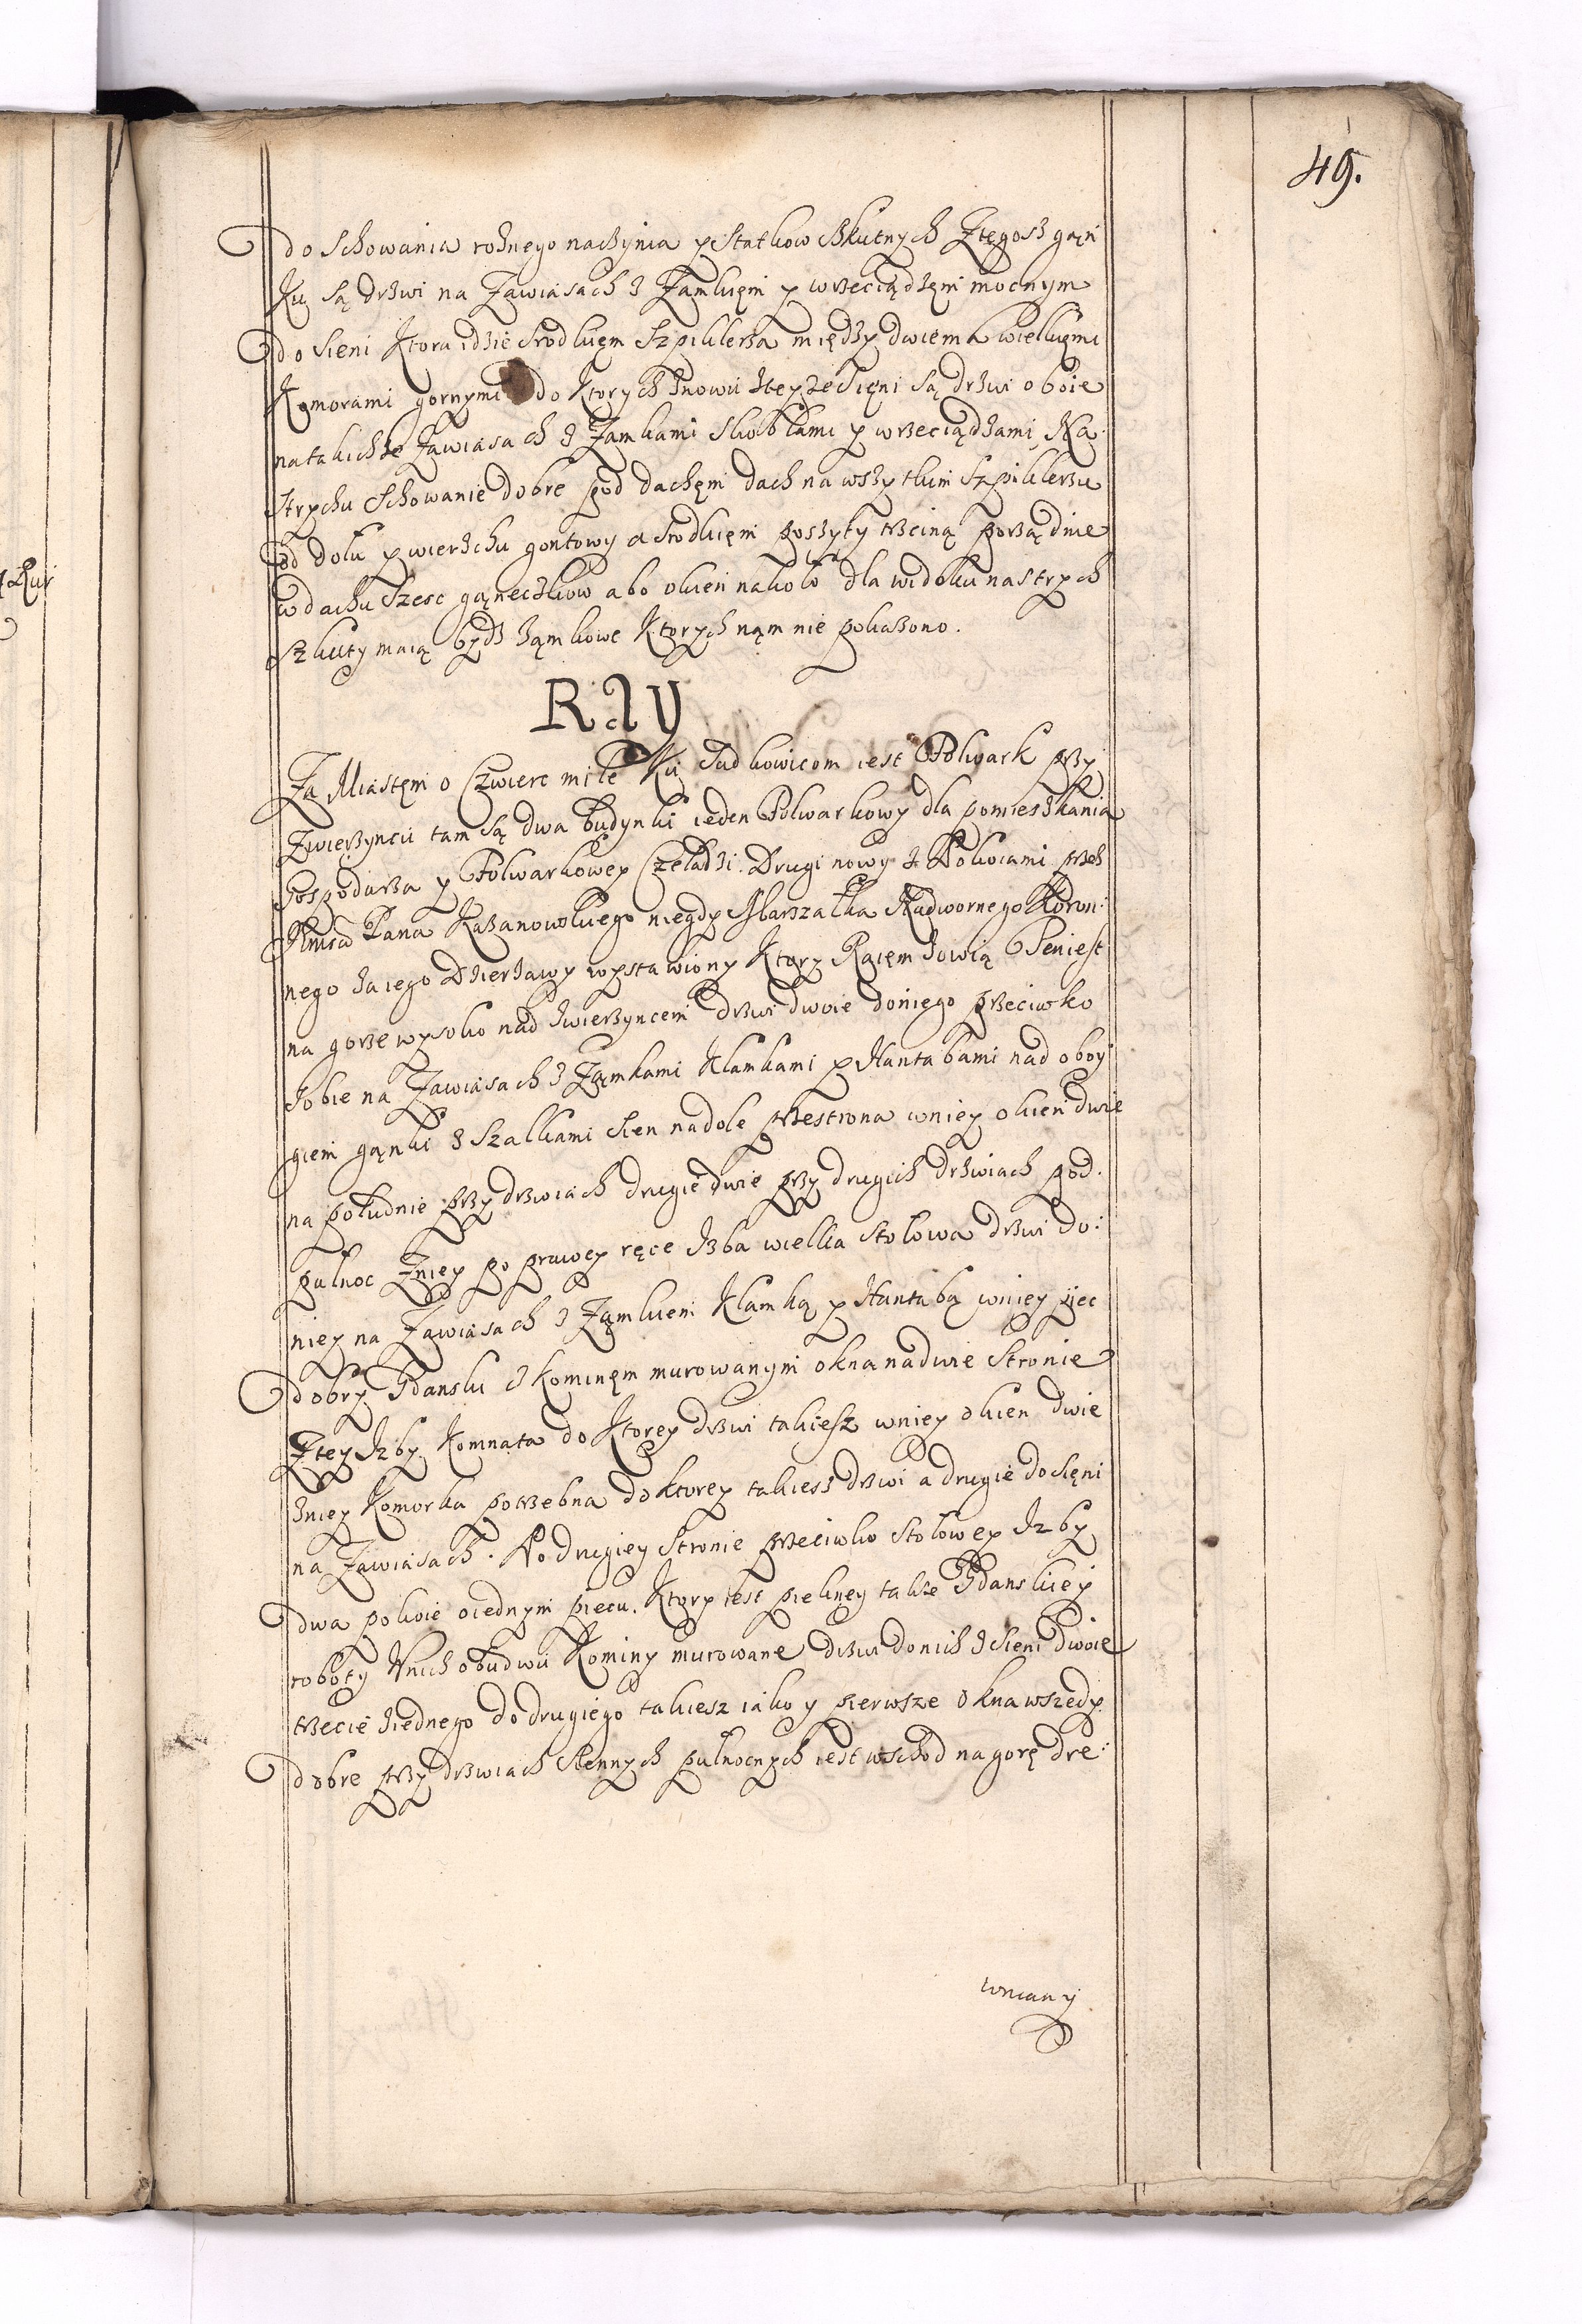 49.
do schowania rożnego naczynia y statkow szkutnych Ztegosz gąn
ku są drzwi na Zawiasach z Zamkięm y wrzeciądzęm mocnym
do sieni Ktora idzie srodkięm Szpiklerza między dwiema wielkięmi
Komorami gornymi do Ktorych znowu zteyze sięni są drzwi oboie
na takichze Zawiasach z Zamkami skoblami y wrzeciądzami Na
strychu schowanie dobre pod dachęm dach na wszytkim Szpiklerzu
od dołu y wierzchu gontowy a srodkięm poszyty trzciną porządnie
w dachu szesc gąneczkow abo okien nakoło dla widoku na strych
szkuty maią bydz ząmkowe Ktorych nąm nie pokazono.
RAY
Za Miastęm o czwierc mile Ku Sudkowicom iest Folwark przy
Zwierzyncu tam są dwa budynki ieden Folwarkowy dla pomieszkania
Gospodarza y Folwarkowey Czeladzi. Drugi nowy z Pokoiami przez
Pana Kazanowskiego niegdy Marszałka Nadwornego Koron:
nego za iego Dzierzawy wystawiony Ktory Raięm zowią Ten iest
na gorze wysoko nad zwierzyncem drzwi dwoie do niego przeciwko
sobie na Zawiasach z Ząmkami Klamkami y Hantabami nad oboy
giem gąnki z Szalkami sien na dole przestrona wniey okien dwie
na południe przy drzwiach drugie dwie przy drugich drzwiach pod.
pułnoc Zniey po prawey ręce Izba wielka stołowa drzwi do:
niey na Zawiasach z Ząmkiem Klamką y Hantabą wniey piec
dobry Gdanski z kominęm murowanym okna na dwie stronie
Ztey Izby Komnata do Ktorey drzwi takiesz wniey okien dwie
zniey Komorka potrzebna do ktorey takiesz drzwi a drugie do sięni
na Zawiasach. Po drugiey stronie przeciwko stołowey Izby
dwa pokoie o iednym piecu. Ktory iest piekney takze Gdanskiey
roboty Wnich obudwu Kominy murowane drzwi do nich z sieni dwoie
trzecie ziednego do drugiego takiesz iako y pierwsze okna wszedy
dobre przy drzwiach siennych pułnocnych iest wschod na gorę dre:
wniany